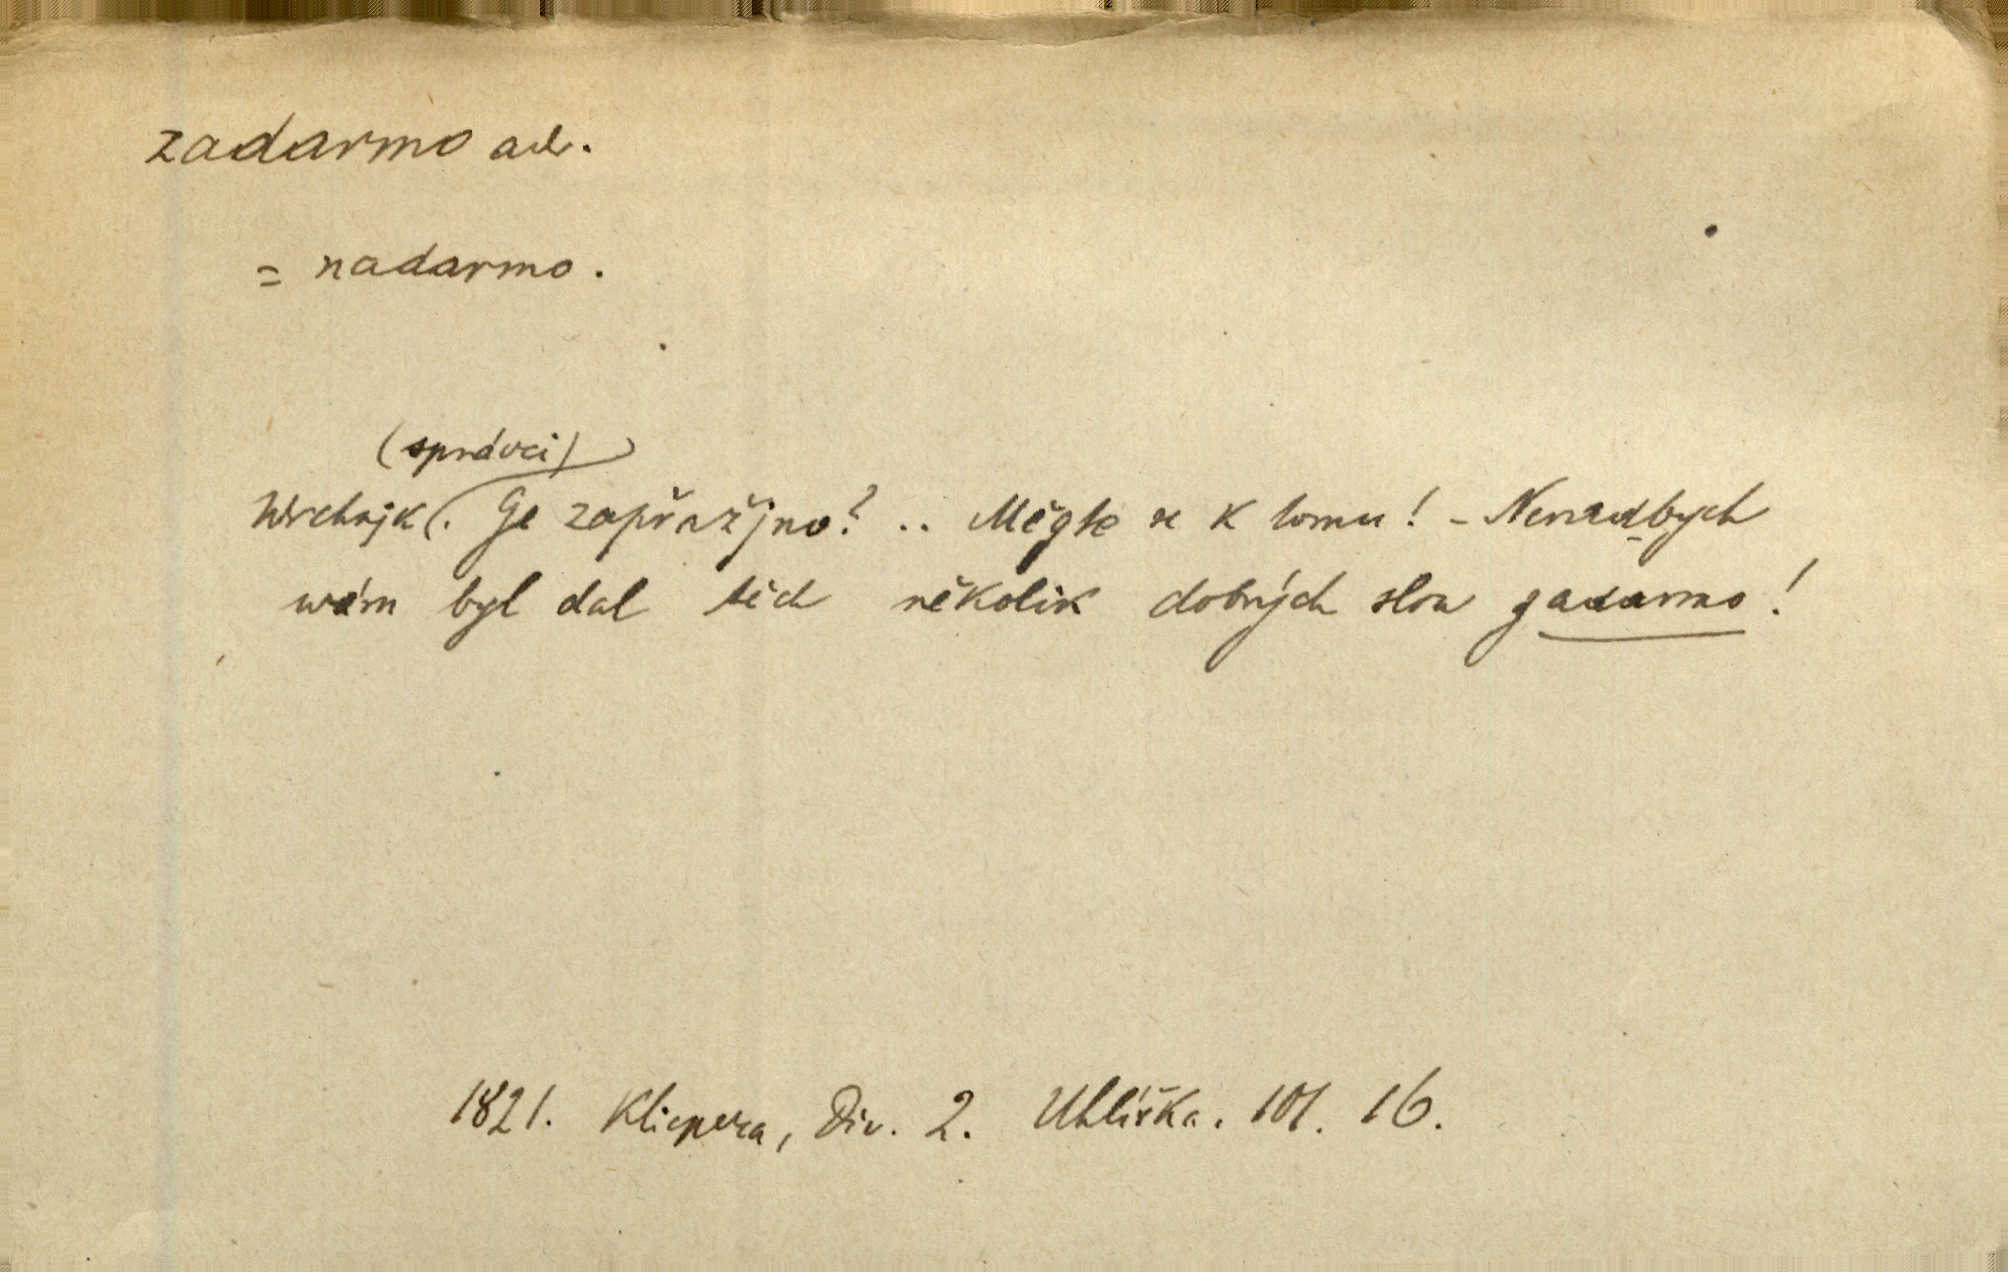 zadarmo adv.
= nadarmo.
(správci)
Wrchnjk. Ge zapřažjno? .. Měgte se k tomu! – Nerad bych
wám byl dal těch několik dobrých slow zadarmo!
1821. Klicpera, Div. 2. Uhlířka. 101. 16.